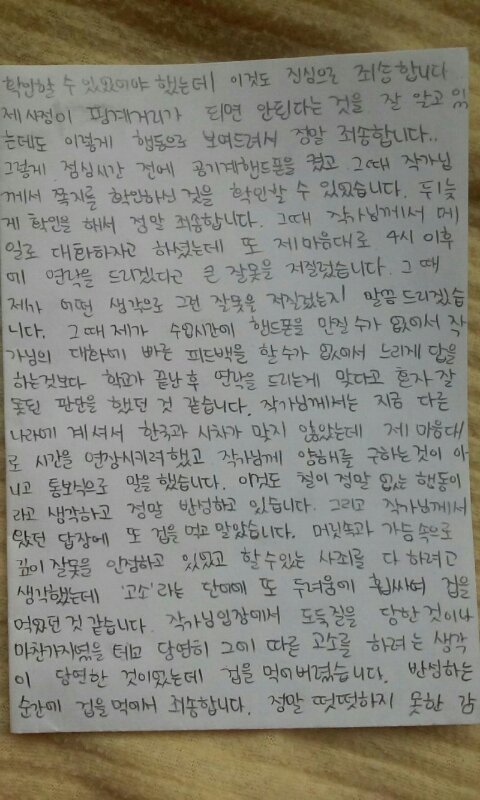 확인할 수 있었어야 했는데 이것도 진심으로 죄송합니다
제 사정이 핑계거리가 되면 안된다는 것을 잘 알고 있
는데도 이렇게 행동으로 보여드려서 정말 죄송합니다..
그렇게 점심시간 전에 공기계핸드폰을 켰고 그때 작가님
께서 쪽지를 확인하신 것을 확인할 수 있었습니다. 뒤늦
게 확인을 해서 정말 죄송합니다. 그때 작가님께서 메
일로 대화하자고 하셨는데 또 제 마음대로 4시 이후
에 연락을 드리겠다고 큰 잘못을 저질렀습니다. 그 때
제가 어떤 생각으로 그런 잘못을 저질렀는지 말씀 드리겠습
니다. 그 때 제가 수업시간에 핸드폰을 만질 수가 없어서 작
가님의 대화에 빠른 피드백을 할 수가 없어서 느리게 답을
하는것보다 학교가 끝난 후 연락을 드리는게 맞다고 혼자 잘
못된 판단을 했던 것 같습니다. 작가님께서는 지금 다른
나라에 계셔서 한국과 시차가 맞지 않았는데 제 마음대
로 시간을 연장시키려 했고 작가님께 양해를 구하는 것이 아
니고 통보식으로 말을 했습니다. 이것도 철이 정말 없는 행동이
라고 생각하고 정말 반성하고 있습니다. 그리고 작가님께서
왔던 답장에 또 겁을 먹고 말았습니다. 머릿속과 가슴속으로
깊이 잘못을 인정하고 있었고 할 수 있는 사죄를 다 하려고
생각했는데 '고소'라는 단어에 또 두려움에 휩싸여 겁을
먹었던 것 같습니다. 작가님입장에서 도둑질을 당한 것이나
마찬가지였을 테고 당연히 그에 따른 고소를 하려는 생각
이 당연한 것이었는데 겁을 먹어버렸습니다. 반성하는
순간에 겁을 먹어서 죄송합니다. 정말 떳떳하지 못한 감